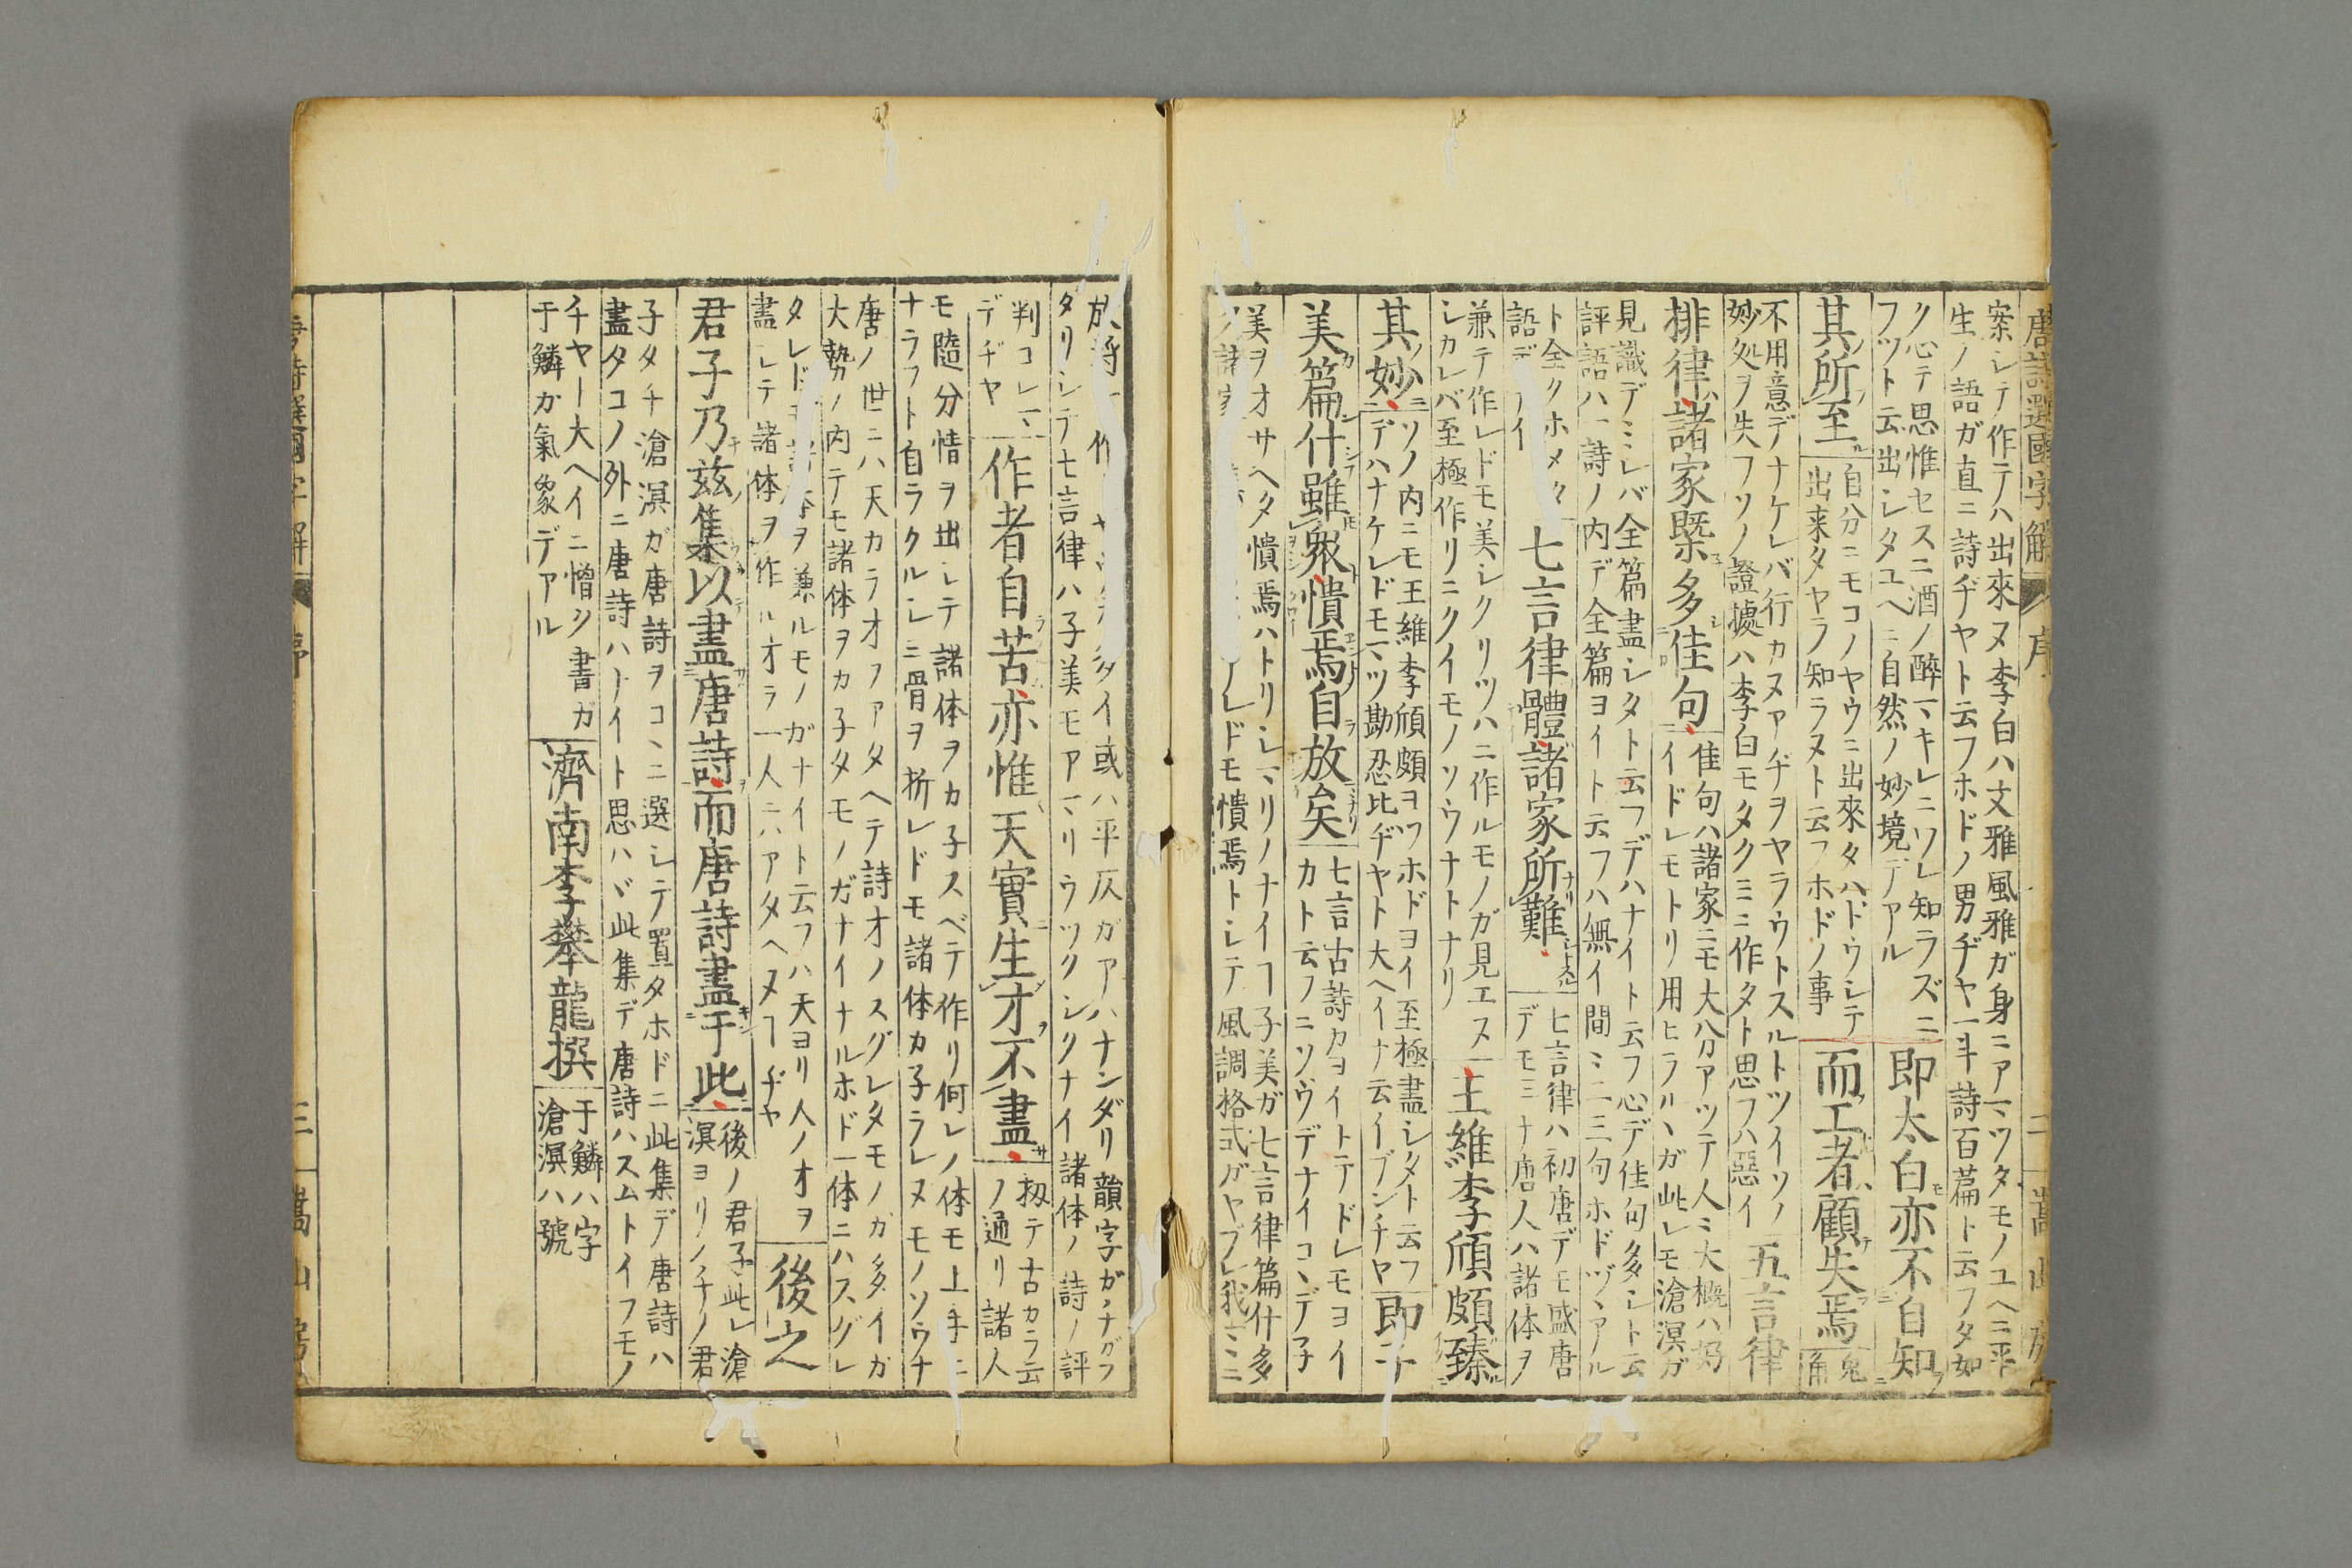 唐詩選國字解 序 二 嵩山房
案シテ作テハ出來ヌ李白ハ文雅風雅ガ身ニアマツタモノユヘニ平
生ノ語ガ直ニ詩ヂヤト云フホドノ男ヂヤ一斗詩百篇ト云フタ如
ク心テ思惟セスニ酒ノ醉マキレニソレ知ラズニ
フツト云出シタユヘニ自然ノ妙境デアル
即太白亦不自知
其所至
自分ニモコノヤウニ出來タハドウシテ
出来タヤラ知ラヌト云フホドノ事
而工者顧失焉
兔角
不用意デナケレバ行カヌアヂヲヤラウトスルトツイソノ
妙処ヲ失フソノ證據ハ李白モタクミニ作タト思フハ惡イ
五言律
排律諸家槩多佳句
佳句ハ諸家ニモ大分アツテ人ミ大概ハ好
イドレモトリ用ヒラルヽガ此レモ滄溟ガ
見識デミレバ全篇盡シタト云フデハナイト云フ心デ佳句多シト云
評語ハ一詩ノ内デ全篇ヨイト云フハ無イ間ミ二三句ホドヅヽアル
ト全クホメタ
語デ イ
七言律體諸家所難
七言律ハ初唐デモ盛唐
デモミナ唐人ハ諸体ヲ
兼テ作レドモ美シクリツハニ作ルモノガ見エヌ
シカレバ至極作リニクイモノソウナトナリ
王維李頎頗臻
其妙
ソノ内ニモ王維李頎頗ヨツホドヨイ至極盡シタト云フ
デハナケレドモマツ勘忍比ヂヤト大ヘイナ云イブンチヤ
即子
美篇什雖衆憒焉自放矣
七言古詩カヨイトテドレモヨイ
カト云フニソウデナイコヽデ子
美ヲオサヘタ憒焉ハトリシマリノナイヿ子美ガ七言律篇什多
レドモ憒焉トシテ風調格式ガヤブレ我マヽニ
放將 作 多イ或ハ平仄ガアハナンダリ韻字ガヽナガフ
タリシテ七言律ハ子美モアマリウツクシクナイ諸体ノ詩ノ評
判コレマヽ
デヂヤ
作者自苦亦惟天實生才不盡
扨テ古カラ云
ノ通リ諸人
モ隨分情ヲ出シテ諸体ヲカ子スベテ作リ何レノ体モ上手ニ
ナラフト自ラクルシニ骨ヲ折レドモ諸体カ子ラレヌモノソウナ
唐ノ世ニハ天カラオフアタヘテ詩オノスグレタモノガ多イガ
大勢ノ内テモ諸体ヲカ子タモノガナイナルホド一体ニハスグレ
タレドモ諸体ヲ兼ルモノガナイト云フハ天ヨリ人ノオヲ
盡シテ諸体ヲ作ルオラ一人ニハアタヘヌヿヂヤ
後之
君子乃茲集以盡唐詩而唐詩盡于此
後ノ君子此レ滄
溟ヨリノチノ君
子タチ滄溟ガ唐詩ヲコヽニ選シテ置タホドニ此集デ唐詩ハ
盡タコノ外ニ唐詩ハナイト思ハヾ此集デ唐詩ハスムトイフモノ
チヤー大ヘイニ憎ク書ガ
于鱗ガ氣象デアル
濟南李攀龍撰
于鱗ハ字
滄溟ハ號
唐詩選國字解 序 三 嵩山房